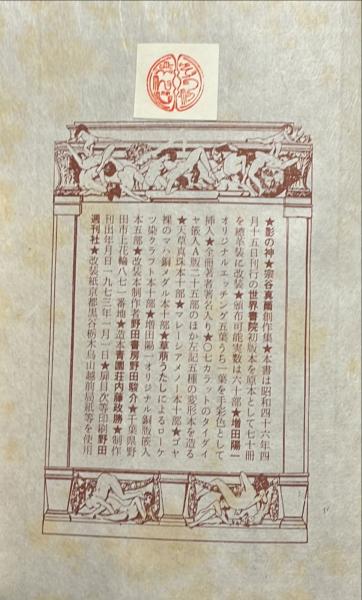 ★影の神★宗谷真爾創作集★本書は昭和四十六年四
月十五日刊行の世界書院初版本を原本として七十冊
を總革装に改装★頒布可能実数は六十部★増田陽一
オリジナルエッチング五葉うち一葉を手彩色として
挿入★全冊著者署名入り★〇七カラットのタイダイ
ヤ嵌入A版二十五部のほか左記五種の変形本を造る
★天草真珠本十部★マレーシアメノー本十部★ゴヤ
裸のマハ銅メダル本十部★草萠うたしによるローケ
ツ染クラフト本十部★増田陽一オリジナル銅版嵌入
本五部★改装本制作者野田書房野田駿介★千葉県野
田市上花輪八七一番地★造本青園荘内藤政勝★制作
刊出年月日一九七三年一月一日★扉目次等印刷野田
週刊社★改装紙京都黒谷栃木烏山越前局紙等を使用